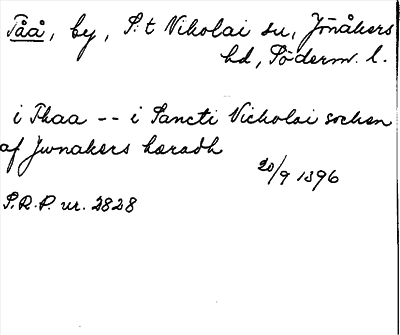 Tåå, by, S:t Nikolai sn, Jönåkers
hd, Söderm. l.
i Thaa -- i Sancti Nicholai sochen
af Jwnakers hæradh
20/9 1396
S.R.P. nr. 2828